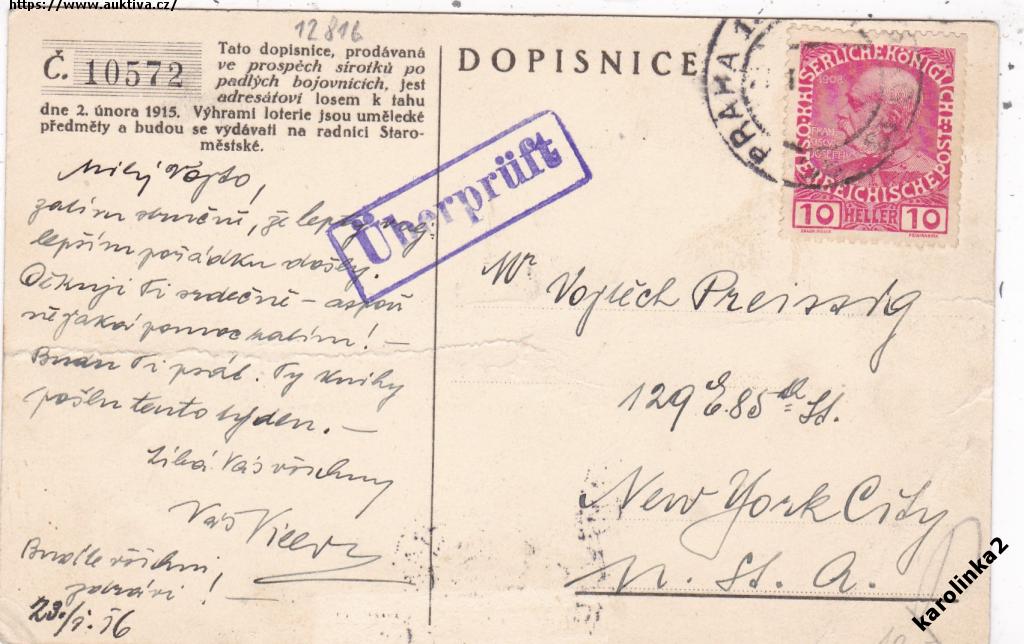 https://www.auktiva.cz/
12816
Č. 10572
Tato dopisnice, prodávaná
ve prospěch sirotků po
padlých bojovnících, jest
adresátovi losem k tahu
dne 2. února 1915. Výhrami loterie jsou umělecké
předměty a budou se vydávati na radnici Staro-
městské.
DOPISNICE
PRAHA 1
KAISERLICHE KÖNIGLICHE
ÖSTERREICHISCHE POST
1908
10 HELLER 10
Überprüft
Milý Vojto,
zatím stručně, že
lepším pořádku došly.
Děkuji Ti srdečně – aspoň
nějaká pomoc zatím! –
Budu Ti psát. Ty knihy
pošlu tento týden. –
Líbá Vás všechny
Váš
Buďte všichni
zdrávi!
Mr Vojtěch Preissig
129 E. 85th St.
New York City
U. St. A.
karolinka2